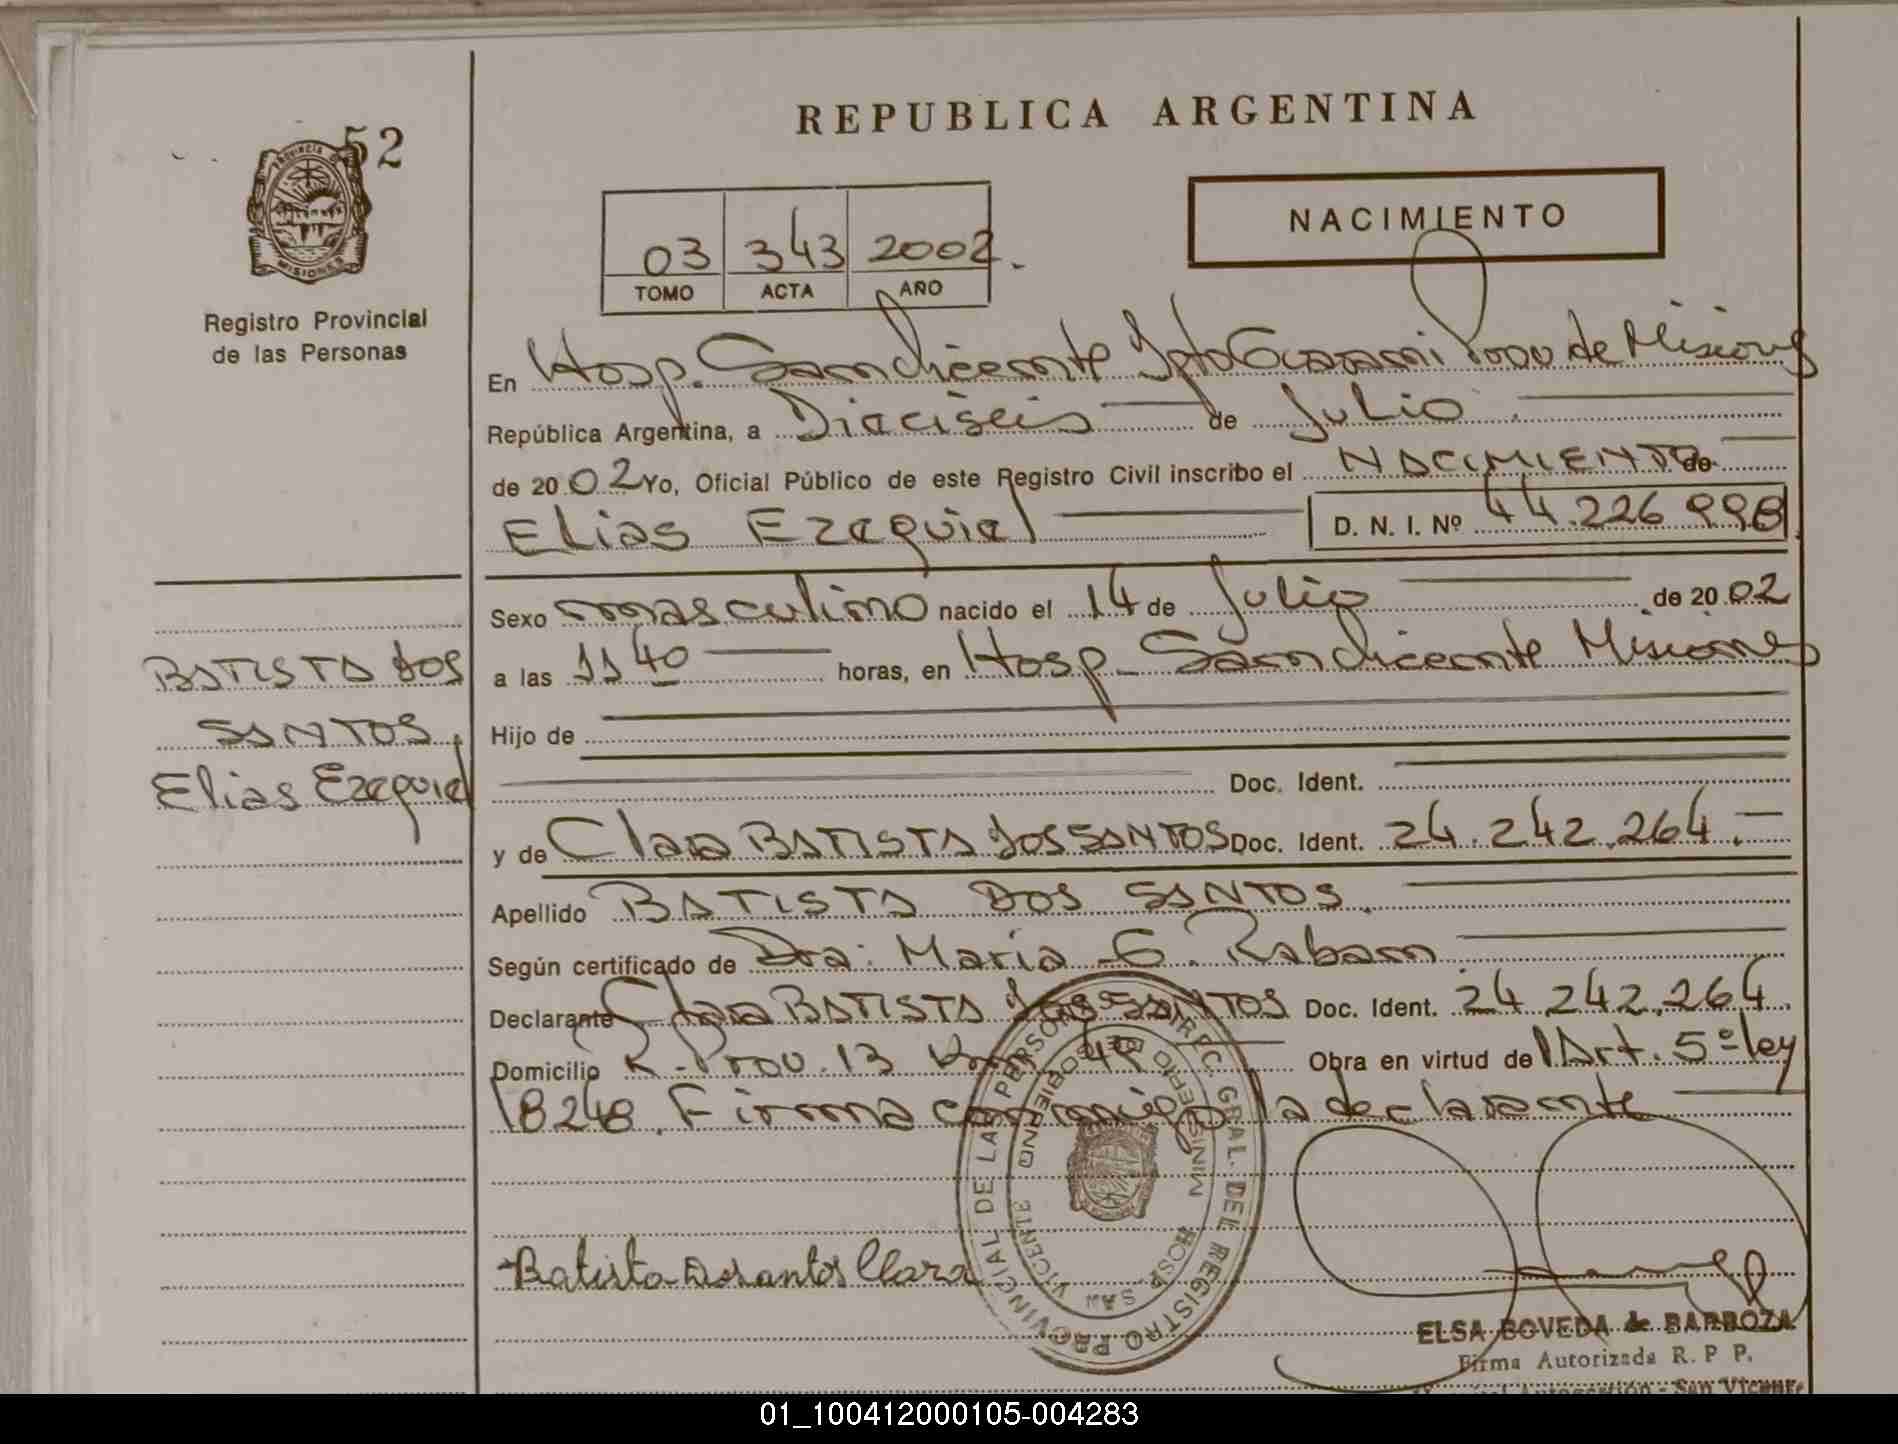 52
PROVINCIA DE
MISIONES
Registro Provincial
de las Personas
BATISTA DOS
SANTOS,
Elias Ezequiel
REPUBLICA ARGENTINA
NACIMIENTO
03 343 2002.
TOMO ACTA AÑO
En Hosp. San Vicente Dpto Guarani Prov de Misiones
República Argentina, a Dieciseis de Julio
de 2002 Yo, Oficial Público de este Registro Civil inscribo el NACIMIENTO de
Elias Ezequiel D. N. I. Nº 44.226 998
Sexo masculino nacido el 14 de Julio de 2002
a las 11 40 horas, en Hosp. San Vicente Misiones
Hijo de
Doc. Ident.
y de Clara BATISTA DOS SANTOS Doc. Ident. 24.242.264.-
Apellido BATISTA DOS SANTOS.
Según certificado de Dra: Maria G. Raban
Declarante Clara BATISTA DOS SANTOS Doc. Ident. 24.242.264.
Domicilio R. Prov. 13 Km Obra en virtud del Art. 5º ley
18248. Firma conmigo la declarante
Batista Dosantos Clara
DIREC. GRAL. DEL REGISTRO PROVINCIAL DE LAS PERSONAS
MINISTERIO DE GOBIERNO
HOSP. SAN VICENTE
ELSA BOVEDA de BARROZA
Firma Autorizada R. P P.
Autogestión - San Vicente
01_100412000105-004283